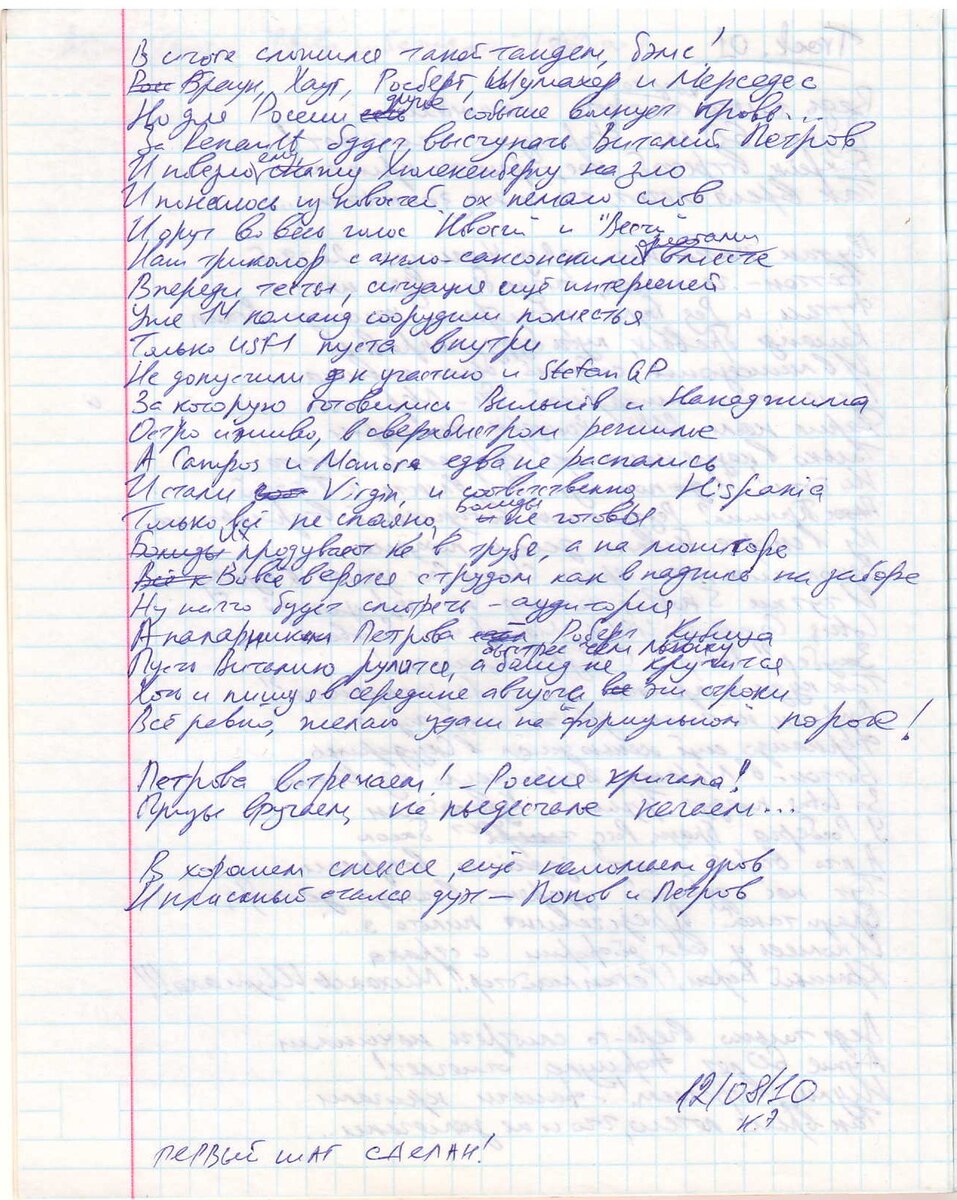 В итоге сложился такой тандем, бэмс!
Браун, Хауг, Росберг, Шумахер и Мерседес
Но для России другие событие волнует кровь...
За Renault будет выступать Виталий Петров
И повезло ему Хюлькенбергу на зло
И понеслось из новостей, ох немало слов
И друг во весь голос Новости и "Вести
Наш триколор с англо-саксонскими вместе
Впереди тесты, ситуация ещё интересней
Уже 14 команд соорудили поместья
Только USF1 пуста внутри
Не допустили к участию и Stefan GP
За которую готовились Вильнёв и Накаджима
Остро и живо, в сверхбыстром режиме
А Campos и Manora едва не распались
И стали Virgin, и соответственно Hispania
Только всё не спаяно, болиды не готовы
Их продувают не в трубе, а на мониторе
Во всё верятся с трудом как в надпись на заборе
Ну ничго будет смотреть - аудитория
А напарником Петрова Роберт Кубица
Пусть Виталию рулится, а болид не крутится
Хоть и пишу я в середине августа эти строки
Всё равно, желаю удачи на формульном пороге!
Петрова встречаем! - Россия кричала!
Призы вручаем, на пьедестале качаем...
В хорошем смысле, ещё наломаем дров
И прекрасный стался дуэт - Попов и Петров
12/08/10
ПЕРВЫЙ ШАГ СДЕЛАН!